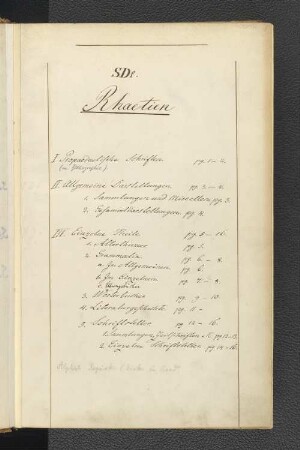 SDe.
Rhaetica
I Propaedeutische Schriften pg. 1-2.
(u. Bibliographie)
II. Allgemeine Darstellungen pg. 2-4.
1. Sammlungen und Miscellen pg. 3.
2. Gesamtdarstellungen pg. 4.
IV. Einzelne Theile pg. 5-16.
1. Alterthümer pg. 5.
2. Grammatik pg. 6-8.
a. Im Allgemeinen pg. 6.
b. Im Einzelnen pg. 7-8.
3. Wörterbücher pg. 9-10.
4. Literaturgeschichte pg. 11-
5. Schriftsteller pg. 12-16.
1. Sammlungen, pg. 12-13.
2. Einzelne Schriftsteller pg. 14-16.